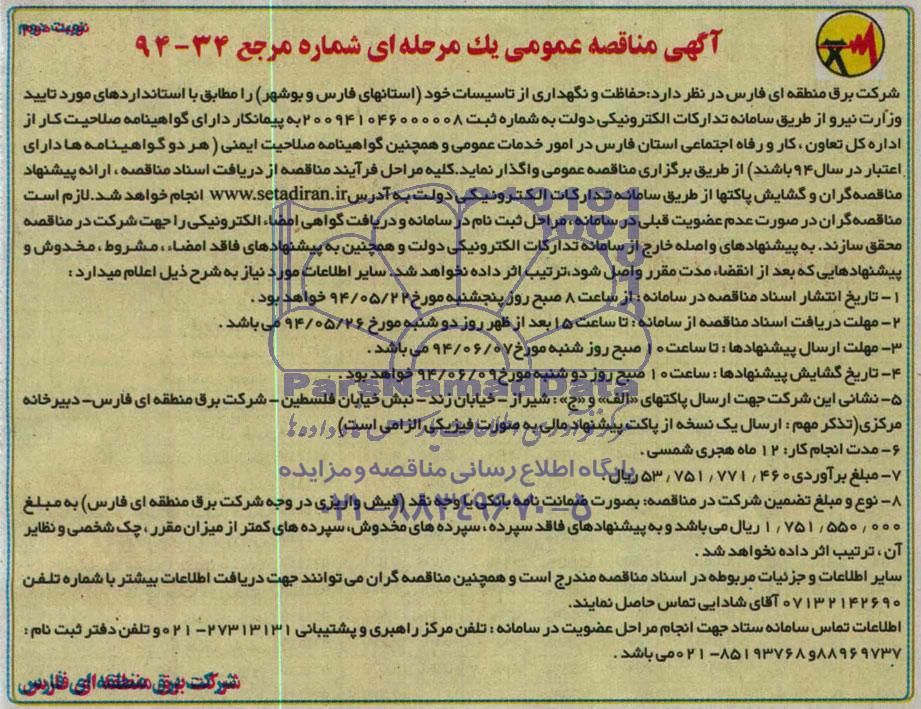 نوبت دوم
آگهی مناقصه عمومی یك مرحله ای شماره مرجع ۳۴-۹۴
شرکت برق منطقه ای فارس در نظر دارد:حفاظت و نگهداری از تاسیسات خود (استانهای فارس و بوشهر) را مطابق با استانداردهای مورد تایید
وزارت نیرو از طریق سامانه تدارکات الکترونیکی دولت به شماره ثبت ۲۰۰۹۴۱۰۴۶۰۰۰۰۰۸ به پیمانکار دارای گواهینامه صلاحیت کار از
اداره کل تعاون ، کار و رفاه اجتماعی استان فارس در امور خدمات عمومی و همچنین گواهینامه صلاحیت ایمنی ( هر دو گواهینامه ها دارای
اعتبار در سال ۹۴ باشند) از طریق برگزاری مناقصه عمومی واگذار نماید.کلیه مراحل فرآیند مناقصه از دریافت اسناد مناقصه ، ارائه پیشنهاد
مناقصه گران و گشایش پاکتها از طریق سامانه تدارکات الکترونیکی دولت به آدرس www.setadiran.ir انجام خواهد شد.لازم است
مناقصه گران در صورت عدم عضویت قبلی در سامانه ، مراحل ثبت نام در سامانه و دریافت گواهی امضاء الکترونیکی را جهت شرکت در مناقصه
محقق سازند. به پیشنهادهای واصله خارج از سامانه تدارکات الکترونیکی دولت و همچنین به پیشنهادهای فاقد امضاء ، مشروط ، مخدوش و
پیشنهادهایی که بعد از انقضاء مدت مقرر واصل شود،ترتیب اثر داده نخواهد شد. سایر اطلاعات مورد نیاز به شرح ذیل اعلام میدارد :
۱- تاریخ انتشار اسناد مناقصه در سامانه : از ساعت ۸ صبح روز پنجشنبه مورخ ۹۴/۰۵/۲۲ خواهد بود .
۲- مهلت دریافت اسناد مناقصه از سامانه : تا ساعت ۱۵ بعد از ظهر روز دو شنبه مورخ ۹۴/۰۵/۲۶ می باشد .
۳- مهلت ارسال پیشنهادها : تا ساعت ۱۰ صبح روز شنبه مورخ ۹۴/۰۶/۰۷ می باشد .
۴- تاریخ گشایش پیشنهادها : ساعت ۱۰ صبح روز دو شنبه مورخ ۹۴/۰۶/۰۹ خواهد بود . .
ParsNamadData
۵- نشانی این شرکت جهت ارسال پاکتهای «الف» و «ج» : شیراز - خیابان زند - نبش خیابان فلسطین - شرکت برق منطقه ای فارس- دبیرخانه
مرکزی(تذکر مهم : ارسال یک نسخه از پاکت پیشنهاد مالی به صورت فیزیکی الزامی است)
۶- مدت انجام کار: ۱۲ ماه هجری شمسی .
پایگاه اطلاع رسانی مناقصه و مزایده
۷- مبلغ برآوردی ۵۳٫۷۵۱٫۷۷۱٫۴۶۰ ریال .
۰۲۱-۸۸۳۴۹۶۷۰-۵
۸- نوع و مبلغ تضمین شرکت در مناقصه: بصورت ضمانت نامه بانکی یا وجه نقد (فیش واریزی در وجه شرکت برق منطقه ای فارس) به مبلغ
۱٫۷۵۱٫۵۵۰٫۰۰۰ ریال می باشد و به پیشنهادهای فاقد سپرده ، سپرده های مخدوش، سپرده های کمتر از میزان مقرر ، چک شخصی و نظایر
آن ، ترتیب اثر داده نخواهد شد .
سایر اطلاعات و جزئیات مربوطه در اسناد مناقصه مندرج است و همچنین مناقصه گران می توانند جهت دریافت اطلاعات بیشتر با شماره تلفن
۰۷۱۳۲۱۴۲۶۹۰ آقای شادایی تماس حاصل نمایند.
اطلاعات تماس سامانه ستاد جهت انجام مراحل عضویت در سامانه : تلفن مرکز راهبری و پشتیبانی ۲۷۳۱۳۱۳۱-۰۲۱ و تلفن دفتر ثبت نام :
۸۸۹۶۹۷۳۷ و ۸۵۱۹۳۷۶۸-۰۲۱ می باشد .
شرکت برق منطقه ای فارس